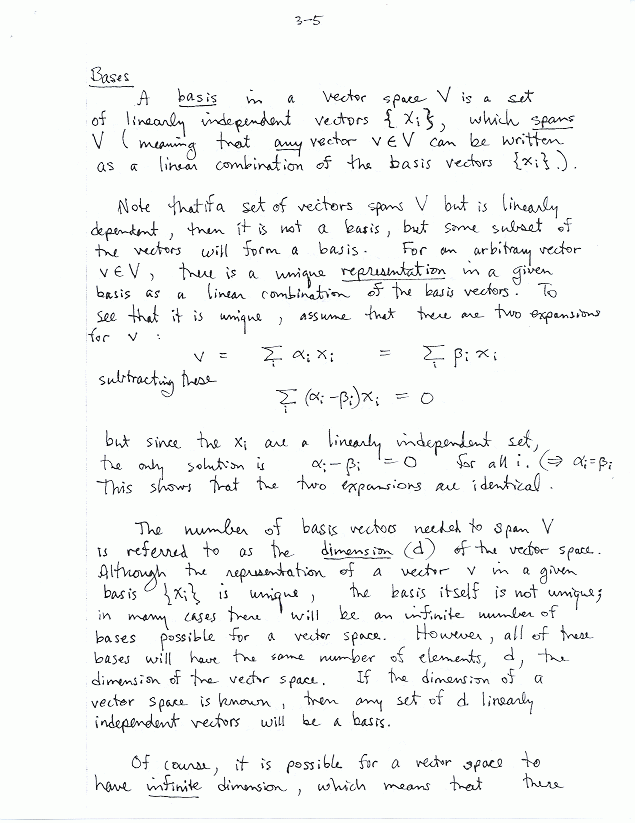 3-5
Bases
A basis in a vector space V is a set
of linearly independent vectors {xᵢ}, which spans
V (meaning that any vector v ∈ V can be written
as a linear combination of the basis vectors {xᵢ}.).
Note that if a set of vectors spans V but is linearly
dependent, then it is not a basis, but some subset of
the vectors will form a basis. For an arbitrary vector
v ∈ V, there is a unique representation in a given
basis as a linear combination of the basis vectors. To
see that it is unique, assume that there are two expansions
for v :
v = Σᵢ αᵢ xᵢ = Σᵢ βᵢ xᵢ
subtracting these
Σᵢ (αᵢ-βᵢ)xᵢ = 0
but since the xᵢ are a linearly independent set,
the only solution is αᵢ-βᵢ = 0 for all i. (⇒ αᵢ=βᵢ
This shows that the two expansions are identical.
The number of basis vectors needed to span V
is referred to as the dimension (d) of the vector space.
Although the representation of a vector v in a given
basis {xᵢ} is unique, the basis itself is not unique;
in many cases there will be an infinite number of
bases possible for a vector space. However, all of these
bases will have the same number of elements, d, the
dimension of the vector space. If the dimension of a
vector space is known, then any set of d linearly
independent vectors will be a basis.
Of course, it is possible for a vector space to
have infinite dimension, which means that there